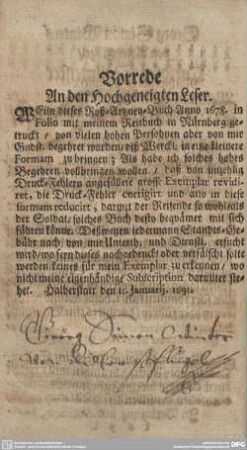 Vorrede
An den Hochgeneigten Leser.
Weiln dieses Roß-Artzney-Buch Anno 1678. in
Folio mit meinem Reitbuch in Nürnberg ge-
truckt / von vielen hohen Persohnen aber von mir
Gndst. begehret worden, diß Werckl. in eine kleinere
Formam zu bringen; Als habe ich solches hohes
Begehren vollbringen wollen / daß von unzehlig
Druck-Fehlern angefüllete gross Exemplar revidi-
ret, die Druck-Fehler corrigirt und also in diese
formam reducirt, damit der Reitende so wohl als
der Soldat, solches Buch desto bequämer mit sich
führen könne. Deßwegen iedermann Standes-Ge-
bühr nach von mir Unterth. und Dienstl. ersucht
wird / wofern dieses nachgedruckt oder verfälscht solte
werden keines für mein Exemplar zu erkennen / wo
nicht meine eigenhändige Subscription darunter ste-
het. Halberstatt den Januarij. 1691.
Georg Simon Winter
Von